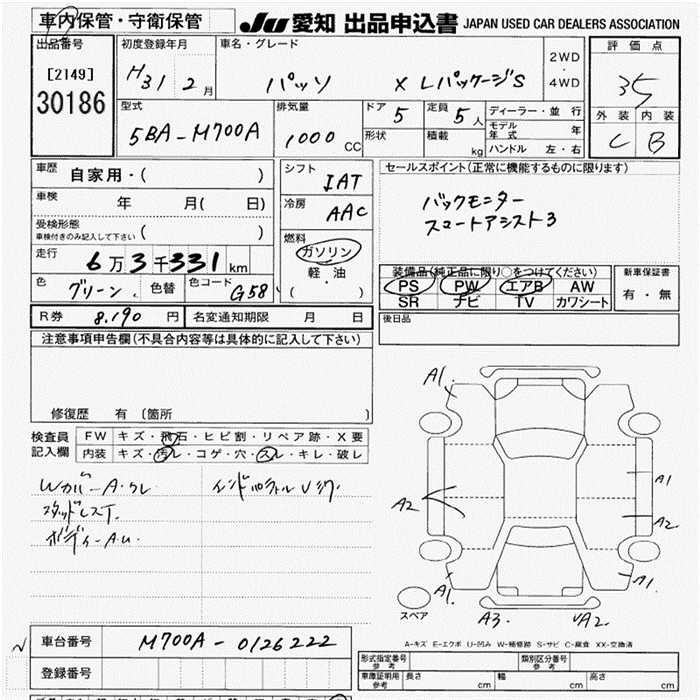 車内保管・守衛保管
JU 愛知 出品申込書 JAPAN USED CAR DEALERS ASSOCIATION
出品番号 [2149] 30186
初度登録年月 H31 2月
車名・グレード パッソ X LパッケージS
2WD・4WD
評価点 3.5
外装 C 内装 B
型式 5BA-M700A
排気量 1000 CC
ドア 5 定員 5人
形状 積載 kg
ディーラー・並行
モデル年式 年
ハンドル 左・右
車歴 自家用・( )
車検 年 月( 日)
受検形態 車検付きのみ記入して下さい ( )
走行 6万3千331km
色 グリーン 色替 色コード G58
シフト IAT
冷房 AAC
燃料 ガソリン 軽・油 ( )
セールスポイント(正常に機能するものに限ります)
バックモニター
スマートアシスト3
装備品(純正品に限り○をつけてください)
PS PW エアB AW
SR ナビ TV カワシート
新車保証書 有・無
R券 8,190 円 名変通知期限 月 日
後日品
注意事項申告欄(不具合内容等は具体的に記入して下さい)
修復歴 有 〔箇所 〕
検査員記入欄
FW キズ・飛石・ヒビ割・リペア跡・X要
内装 キズ・汚レ・コゲ・穴・スレ・キレ・破レ
Wカバー A.クレ
スタッドレスT.
ボディー A.U.
A1
A2
A1
A2
A1
A1.
A3.
A2.
スペア
A-キズ E-エクボ U-凹み W-補修跡 S-サビ C-腐食 XX-交換済
車台番号 M700A-0126222
登録番号
型式指定番号 参考 類別区分番号 参考
車庫証明用 参考 長さ cm 幅 cm 高さ cm